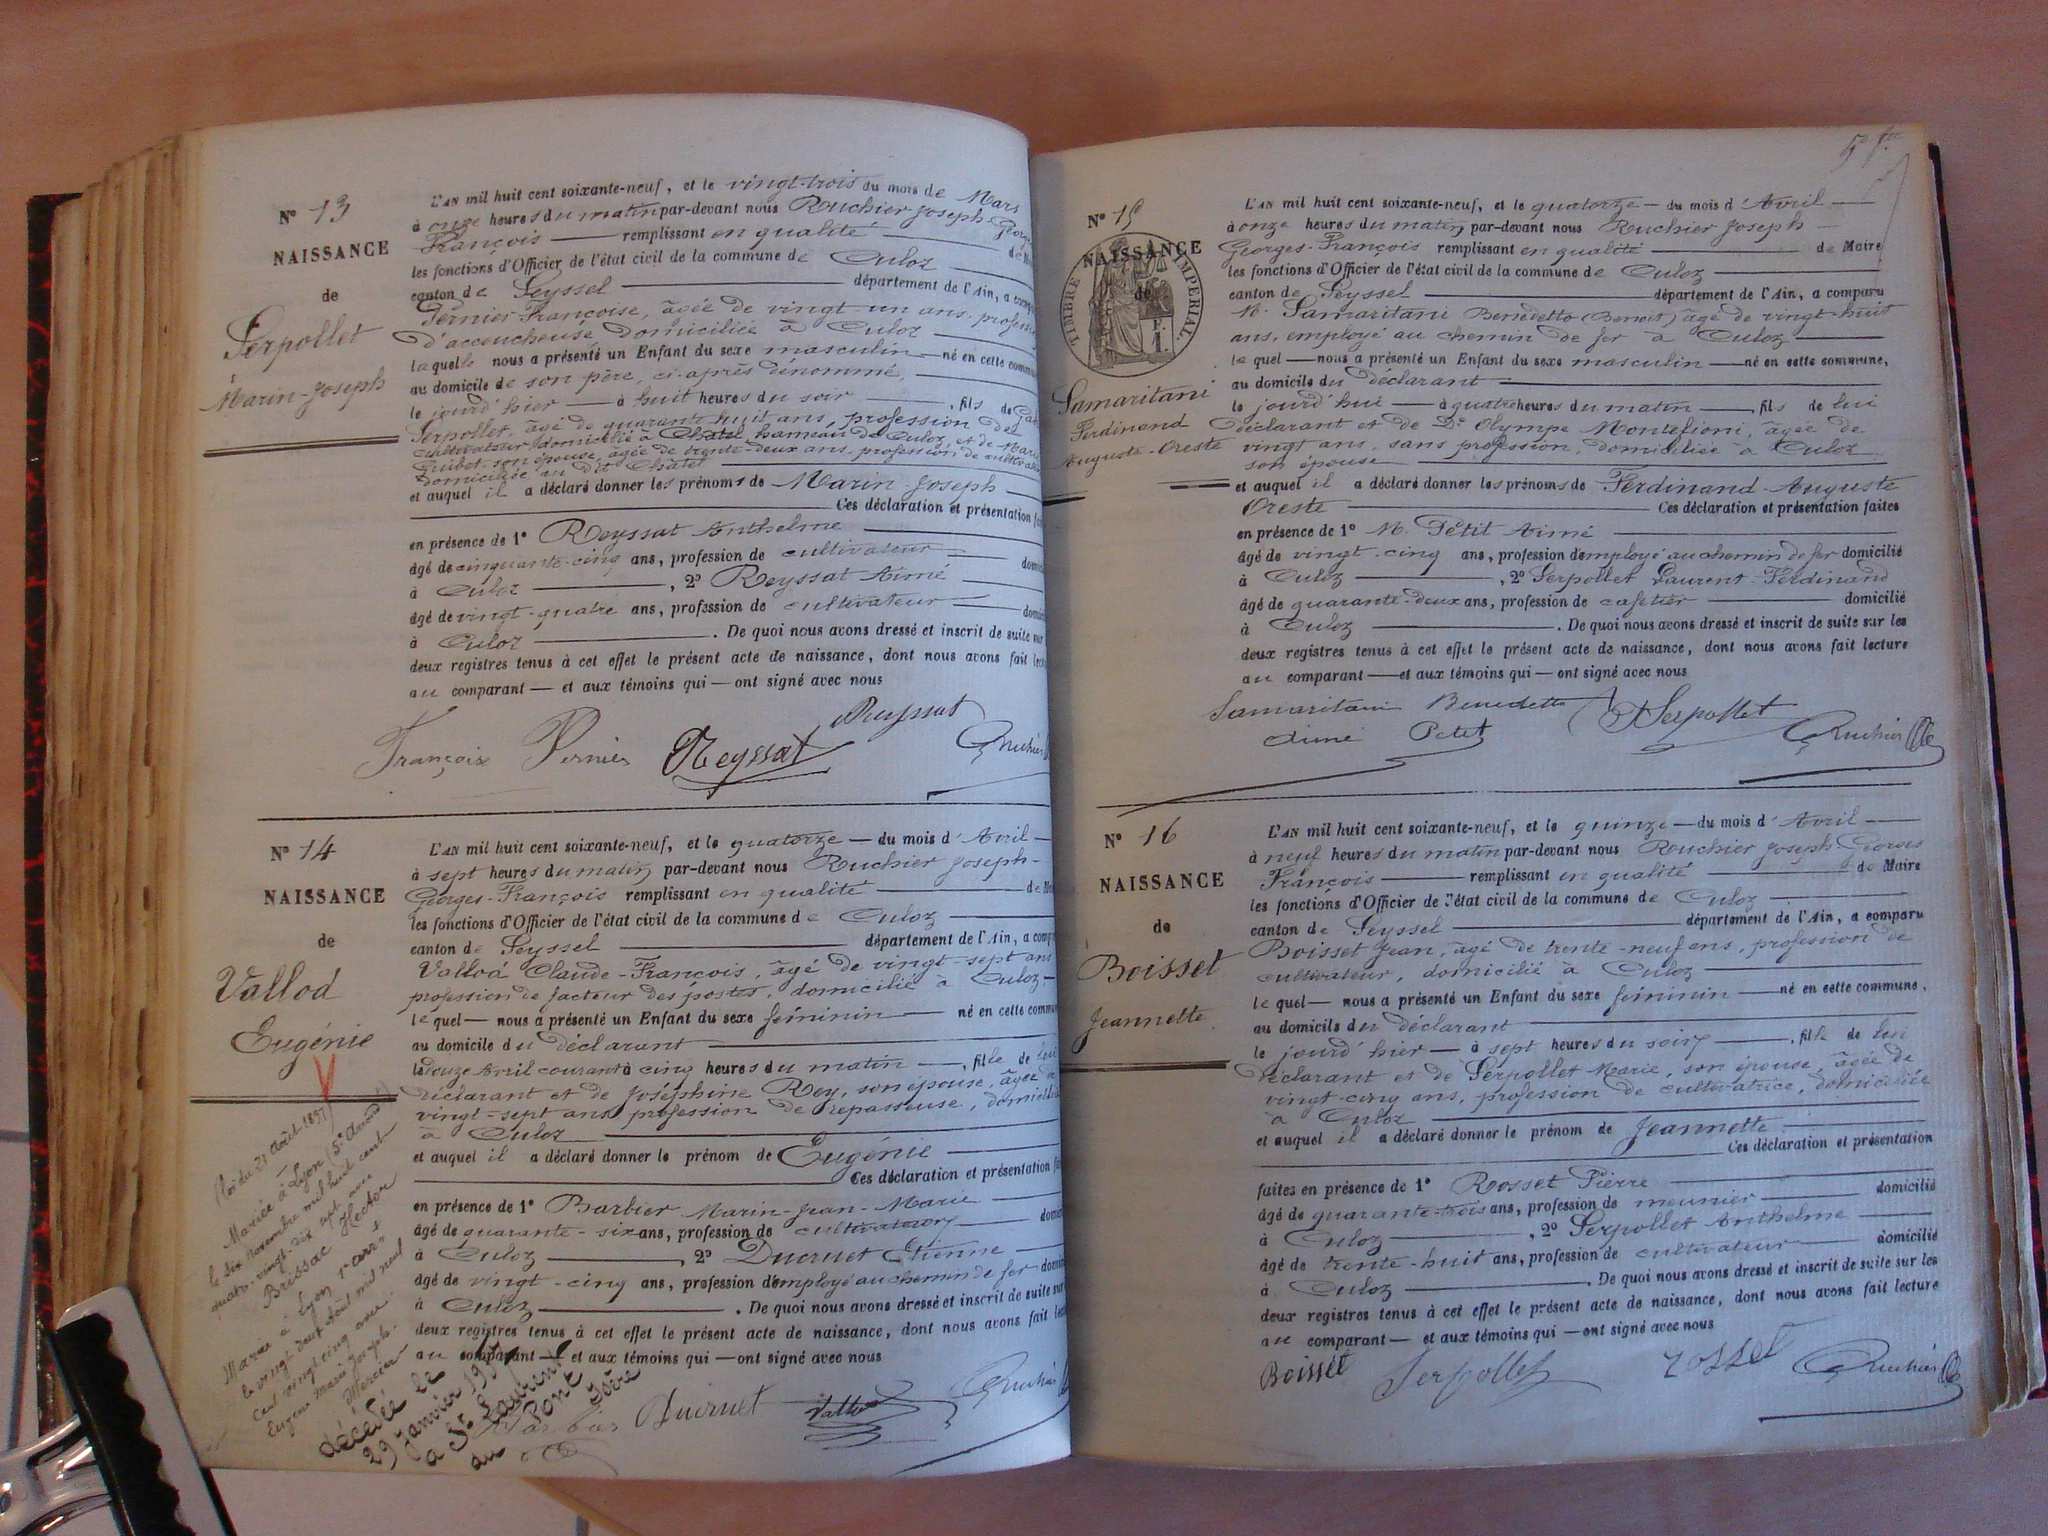 N° 13
NAISSANCE
de
Serpollet
Marin-Joseph
L'AN mil huit cent soixante-neuf, et le vingt-trois du mois de Mars
à onze heures du matin par-devant nous Ruchier Joseph-Georges
François remplissant en qualité
les fonctions d'Officier de l'état civil de la commune de Culoz
canton de Seyssel département de l'Ain, a comparu
Pernier Françoise, âgée de vingt-un ans, profession
d'accoucheuse domiciliée à Culoz
laquelle nous a présenté un Enfant du sexe masculin né en cette commune
au domicile de son père, ci-après dénommé,
le jourd'hier à huit heures du soir, fils de
Serpollet, âgé de quarante-huit ans, profession de
cultivateur, domicilié à Châtel hameau de Culoz, et de Marie
Guibet son épouse, agée de trente-deux ans, profession de
domiciliée au dit Châtel
et auquel il a déclaré donner les prénoms de Marin-Joseph
Ces déclaration et présentation
en présence de 1° Reyssat Anthelme
âgé de cinquante-cinq ans, profession de cultivateur
à Culoz, 2° Reyssat Aimé
âgé de vingt-quatre ans, profession de cultivateur
à Culoz. De quoi nous avons dressé et inscrit de suite sur
deux registres tenus à cet effet le présent acte de naissance, dont nous avons fait
au comparant et aux témoins qui ont signé avec nous
Reyssat
François Pernier Reyssat Ruchier
N° 14
NAISSANCE
de
Vallod
Eugénie
L'AN mil huit cent soixante-neuf, et le quatorze du mois d'Avril
à sept heures du matin par-devant nous Ruchier Joseph-
Georges-François remplissant en qualité
les fonctions d'Officier de l'état civil de la commune de Culoz
canton de Seyssel département de l'Ain, a
Vallod Claude-François, âgé de vingt-sept ans
profession de facteur des postes, domicilié à Culoz
le quel nous a présenté un Enfant du sexe féminin né en cette
au domicile du déclarant
le douze Avril courant à cinq heures du matin, fille de lui
déclarant et de Joséphine Rey, son épouse, âgée de
vingt-sept ans profession de repasseuse, domiciliée
à Culoz
et auquel il a déclaré donner le prénom de Eugénie
Ces déclaration et présentation
en présence de 1° Barbier Marin-Jean-Marie
âgé de quarante-six ans, profession de cultivateur
à Culoz, 2° Ducruet Etienne
âgé de vingt-cinq ans, profession d'employé au chemin de fer
à Culoz. De quoi nous avons dressé et inscrit de suite sur
deux registres tenus à cet effet le présent acte de naissance, dont nous avons fait
au comparant et aux témoins qui ont signé avec nous
Barbier Ducruet Vallod Ruchier
(Loi du 21 Août 1897)
Mariée à Lyon
le six novembre mil huit cent
quatre-vingt-dix-sept avec
Brissac Hector
Mariée à Lyon
le vingt neuf Août mil neuf
cent vingt cinq avec
Eugène Marie Joseph
Mercier
décédée le
29 janvier
à St Laurent
du Pont
Isère
N° 15
NAISSANCE
de
TIMBRE IMPERIAL.
Samaritani
Ferdinand
Auguste-Oreste
L'AN mil huit cent soixante-neuf, et le quatorze du mois d'Avril
à onze heures du matin par-devant nous Ruchier Joseph-
Georges-François remplissant en qualité de Maire
les fonctions d'Officier de l'état civil de la commune de Culoz
canton de Seyssel département de l'Ain, a comparu
M. Samaritani Benedetto (Benoit) âgé de vingt-huit
ans, employé au chemin de fer à Culoz
le quel nous a présenté un Enfant du sexe masculin né en cette commune,
au domicile du déclarant
le jourd'hui à quatre heures du matin, fils de lui
déclarant et de De Olympe Montefioni, âgée de
vingt ans, sans profession, domiciliée à Culoz
son épouse
et auquel il a déclaré donner les prénoms de Ferdinand-Auguste
Oreste Ces déclaration et présentation faites
en présence de 1° M. Petit Aimé
âgé de vingt-cinq ans, profession d'employé au chemin de fer domicilié
à Culoz, 2° Serpollet Laurent-Ferdinand
âgé de quarante-deux ans, profession de cafetier domicilié
à Culoz. De quoi nous avons dressé et inscrit de suite sur les
deux registres tenus à cet effet le présent acte de naissance, dont nous avons fait lecture
au comparant et aux témoins qui ont signé avec nous
Samaritani Benedetto Serpollet
Aimé Petit Ruchier
N° 16
NAISSANCE
de
Boisset
Jeannette
L'AN mil huit cent soixante-neuf, et le quinze du mois d'Avril
à neuf heures du matin par-devant nous Ruchier Joseph-Georges
François remplissant en qualité de Maire
les fonctions d'Officier de l'état civil de la commune de Culoz
canton de Seyssel département de l'Ain, a comparu
Boisset Jean, âgé de trente-neuf ans, profession de
cultivateur, domicilié à Culoz
le quel nous a présenté un Enfant du sexe féminin né en cette commune,
au domicile du déclarant
le jourd'hier à sept heures du soir, fille de lui
déclarant et de Serpollet Marie, son épouse, âgée de
vingt-cinq ans, profession de cultivatrice, domiciliée
à Culoz
et auquel il a déclaré donner le prénom de Jeannette
Ces déclaration et présentation
faites en présence de 1° Rosset Pierre
âgé de quarante-trois ans, profession de meunier domicilié
à Culoz, 2° Serpollet Anthelme
âgé de trente-huit ans, profession de cultivateur domicilié
à Culoz. De quoi nous avons dressé et inscrit de suite sur les
deux registres tenus à cet effet le présent acte de naissance, dont nous avons fait lecture
au comparant et aux témoins qui ont signé avec nous
Boisset Serpollet Rosset Ruchier